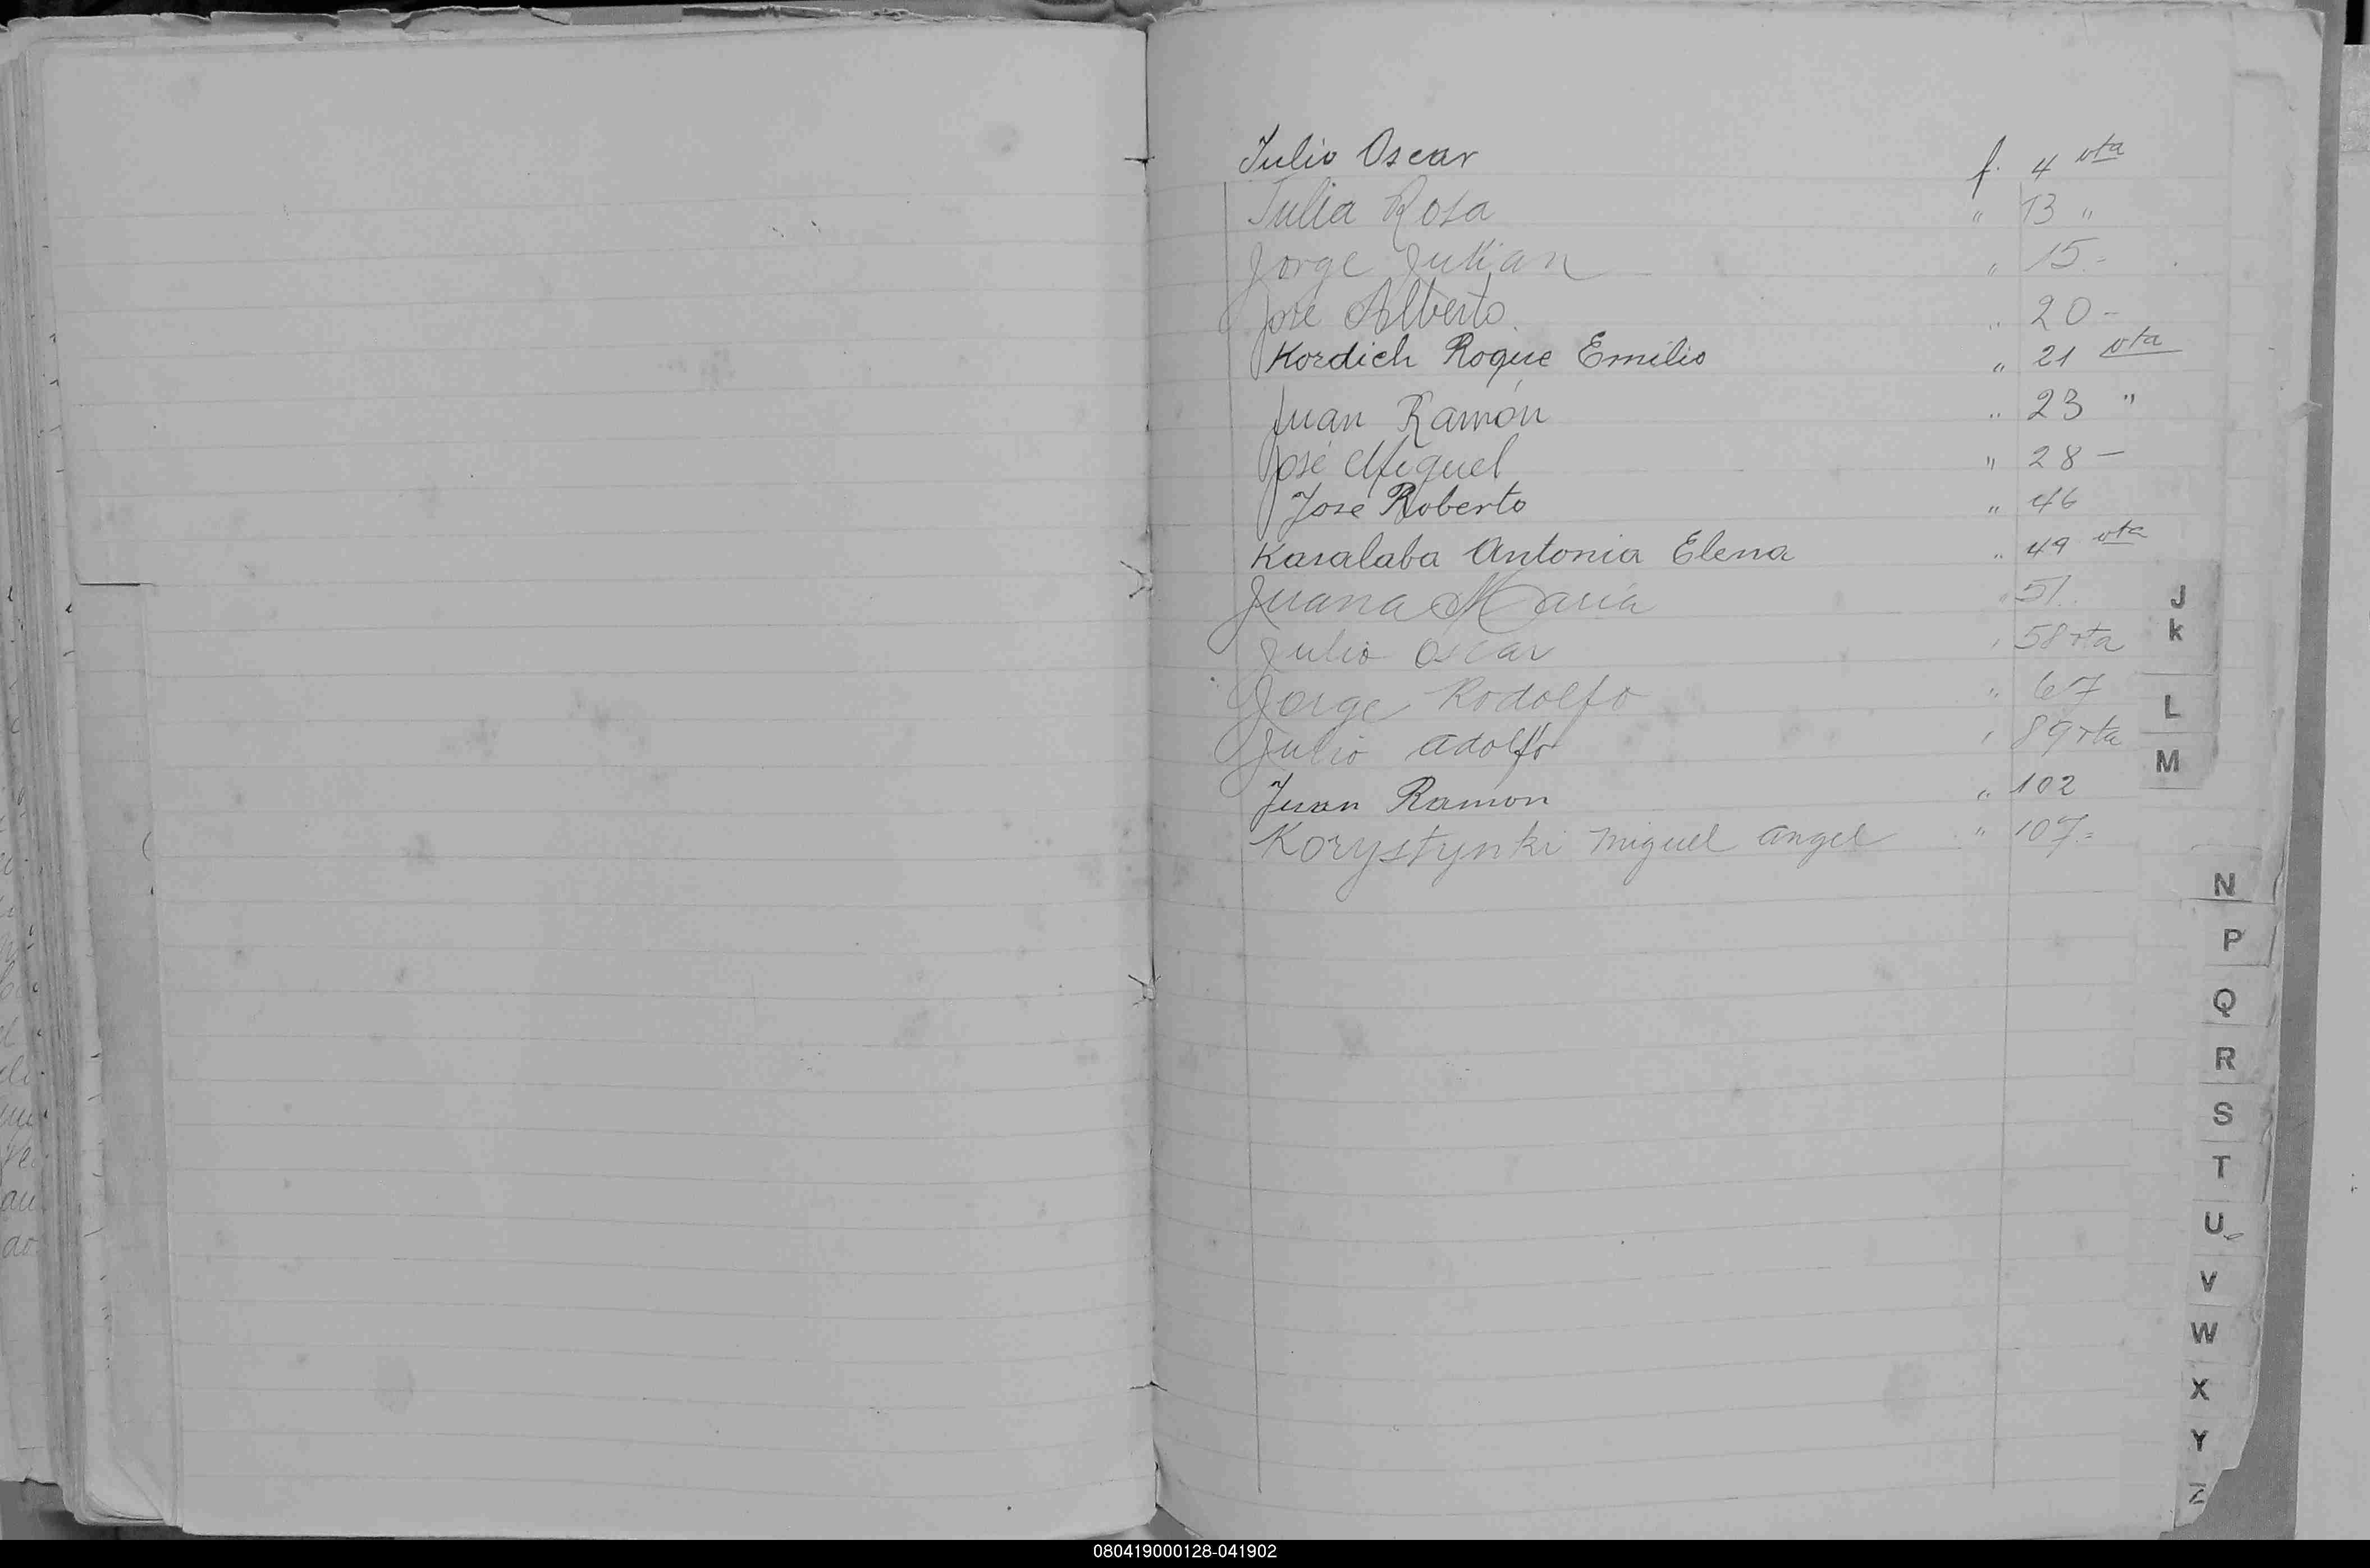 Julio Oscar f. 4 vta
Julia Rosa " 13 "
Jorge Julian " 15.-
José Alberto " 20 -
Kordich Roque Emilio " 21 vta
Juan Ramón " 23 "
José Miguel " 28 -
José Roberto " 46
Kasalaba Antonia Elena " 49 vta
Juana María " 51.
Julio Oscar " 58 vta
Jorge Rodolfo " 67
Julio Adolfo " 89 vta
Juan Ramon " 102
Korystynki Miguel angel " 107=
J
k
L
M
N
P
Q
R
S
T
U
V
W
X
Y
Z
080419000128-041902